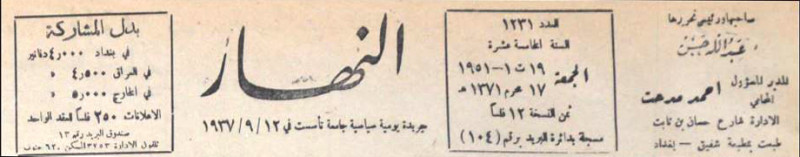 صاحبها ورئيس تحريرها
عبد الله حسين
المدير المسؤول
المحامي
احمد مدحت
الادارة شارع حسان بن ثابت
طبعت بمطبعة شفيق - بغداد
العدد ١٢٣١
السنة الخامسة عشرة
الجمعة
١٩ ت١-١٩٥١
١٧ محرم ١٣٧١ هـ
ثمن النسخة ١٢ فلساً
مسجلة بدائرة البريد برقم (١٠٤)
النهار
جريدة يومية سياسية جامعة تأسست في ١٩٣٧/٩/١٢
بدل المشاركة
في بغداد ٤٫٠٠٠ دنانير
في العراق ٤٫٥٠٠ »
في الخارج ٥٫٠٠٠ »
الاعلانات ٢٥٠ فلساً للعقد الواحد
صندوق البريد رقم ١٣
تلفون الادارة ٣٢٥٣ السكن ٦٢٠ جنوب